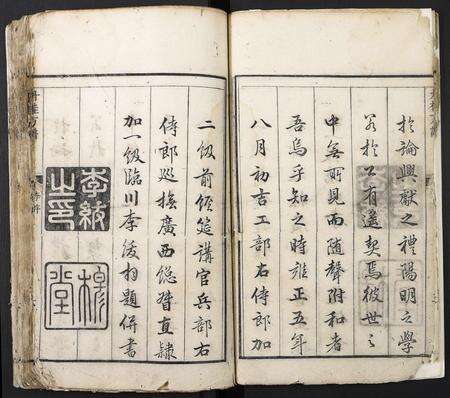 於論興獻之禮陽明之學
若於公有遥契焉彼世之
中無所見而随聲附和者
吾烏乎知之時雍正五年
八月初吉工部右侍郎加
二級前經筵講官兵部右
侍郎巡撫廣西總督直隸
加一級臨川李紱拜題併書
李紱之印
穆堂